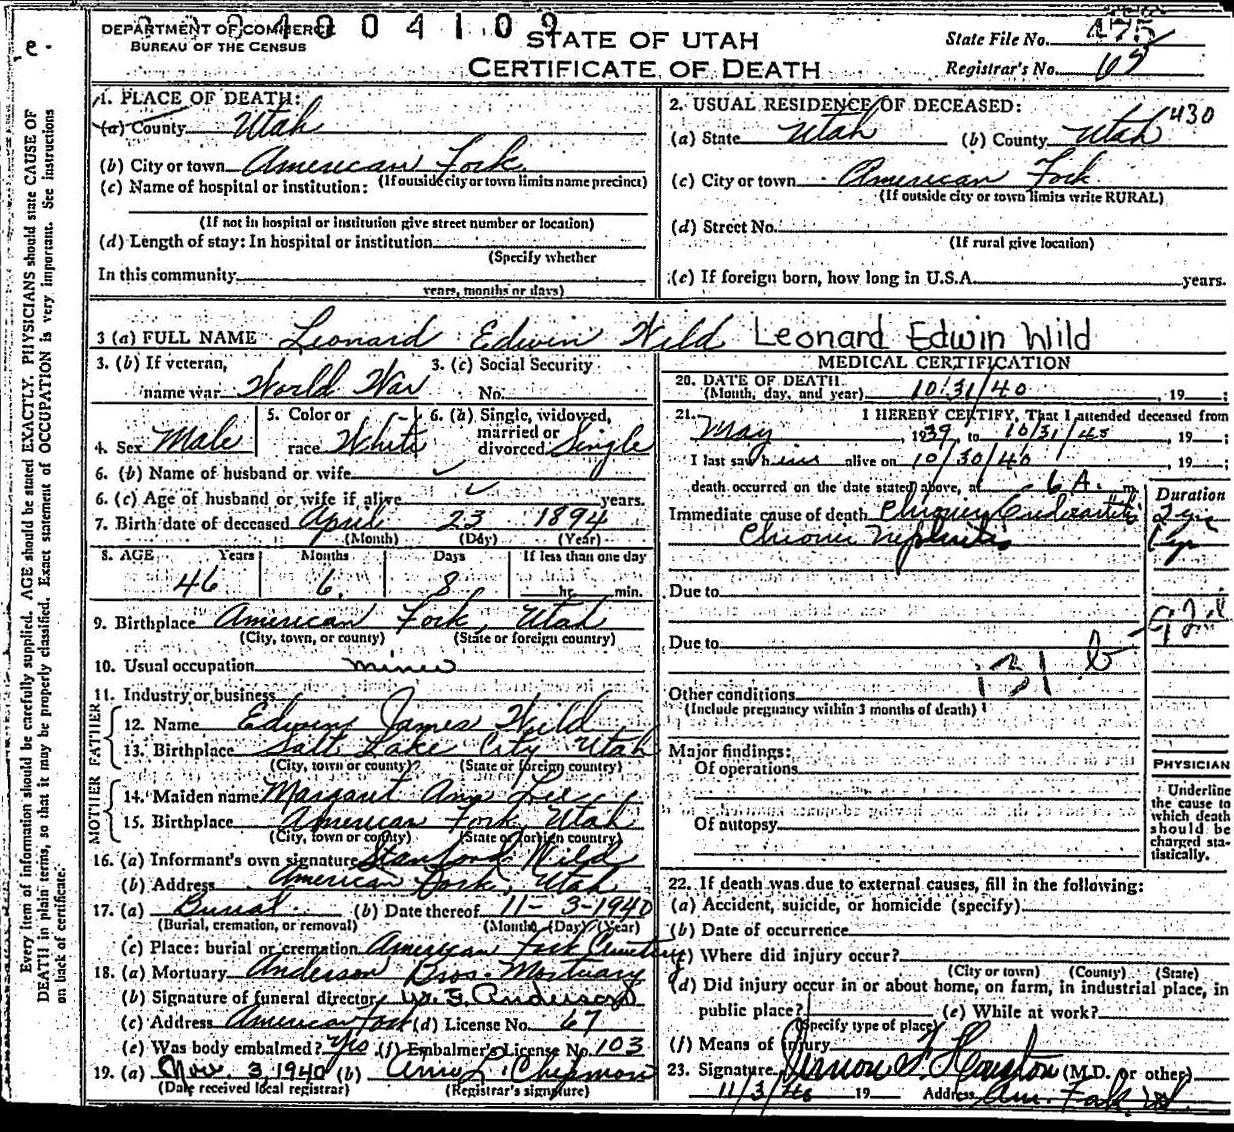 DEPARTMENT OF COMMERCE
BUREAU OF THE CENSUS
0 0 4 1 0 9
STATE OF UTAH
CERTIFICATE OF DEATH
State File No. 175
Registrar's No. 68
e.
Every item of information should be carefully supplied. AGE should be stated EXACTLY. PHYSICIANS should state CAUSE OF
DEATH in plain terms, so that it may be properly classified. Exact statement of OCCUPATION is very important. See instructions
on back of certificate.
1. PLACE OF DEATH:
(a) County Utah
(b) City or town American Fork
(If outside city or town limits name precinct)
(c) Name of hospital or institution:
(If not in hospital or institution give street number or location)
(d) Length of stay: In hospital or institution
(Specify whether
In this community
years, months or days)
2. USUAL RESIDENCE OF DECEASED:
430
(a) State Utah (b) County Utah
(c) City or town American Fork
(If outside city or town limits write RURAL)
(d) Street No.
(If rural give location)
(e) If foreign born, how long in U.S.A. years.
3 (a) FULL NAME Leonard Edwin Wild Leonard Edwin Wild
3. (b) If veteran,
name war World War
3. (c) Social Security
No.
4. Sex Male
5. Color or
race White
6. (a) Single, widowed,
married or
divorced Single
6. (b) Name of husband or wife
6. (c) Age of husband or wife if alive years.
7. Birth date of deceased April 23 1894
(Month) (Day) (Year)
8. AGE Years Months Days If less than one day
46 6 8 hr. min.
9. Birthplace American Fork, Utah
(City, town, or county) (State or foreign country)
10. Usual occupation miner
11. Industry or business
FATHER
12. Name Edwin James Wild
13. Birthplace Salt Lake City Utah
(City, town or county) (State or foreign country)
MOTHER
14. Maiden name Margaret Ann Lee
15. Birthplace American Fork, Utah
(City, town or county) (State or foreign country)
16. (a) Informant's own signature Stanford Wild
(b) Address American Fork, Utah
17. (a) Burial (b) Date thereof 11-3-1940
(Burial, cremation, or removal) (Month) (Day) (Year)
(c) Place: burial or cremation American Fork Cemetery
18. (a) Mortuary Anderson Bros. Mortuary
(b) Signature of funeral director Anderson
(c) Address American Fork (d) License No. 67
(e) Was body embalmed? Yes (f) Embalmer's License No. 103
19. (a) Nov. 3 1940 (b) Chipman
(Date received local registrar) (Registrar's signature)
MEDICAL CERTIFICATION
20. DATE OF DEATH
(Month, day, and year) 10/31/40, 19 ;
21. I HEREBY CERTIFY, That I attended deceased from
May, 1939, to 10/31/40, 19 ;
I last saw him alive on 10/30/40, 19 ;
death occurred on the date stated above, at 6 A. m.
Duration
Immediate cause of death Chronic Endocarditis 2 yrs
Chronic Nephritis 1 yr
Due to
92d
Due to
131 b
Other conditions
(Include pregnancy within 3 months of death)
Major findings:
Of operations
Of autopsy
PHYSICIAN
Underline
the cause to
which death
should be
charged sta-
tistically.
22. If death was due to external causes, fill in the following:
(a) Accident, suicide, or homicide (specify)
(b) Date of occurrence
(c) Where did injury occur?
(City or town) (County) (State)
(d) Did injury occur in or about home, on farm, in industrial place, in
public place? (e) While at work?
(Specify type of place)
(f) Means of injury
23. Signature Vernon F. Houston (M.D. or other)
11/3/40 19 Address Am. Fork, Ut.